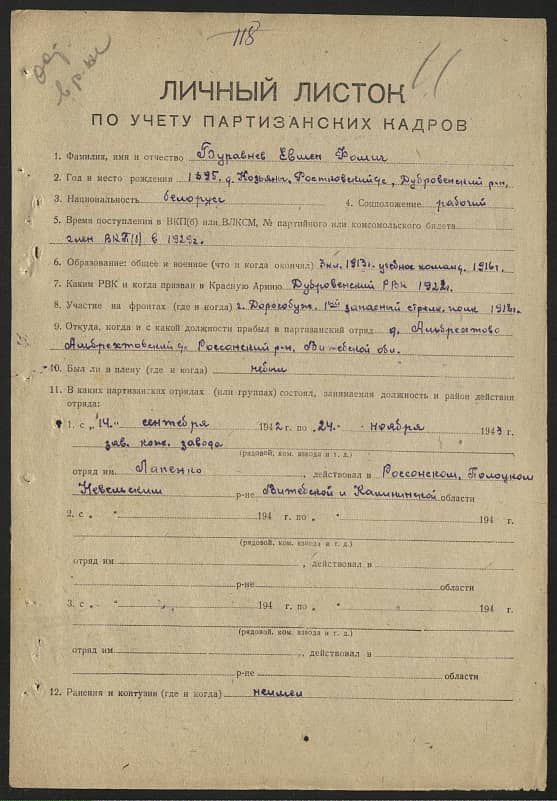 118
ЛИЧНЫЙ ЛИСТОК
ПО УЧЕТУ ПАРТИЗАНСКИХ КАДРОВ
1. Фамилия, имя и отчество Буравнев Евмен Фомич
2. Год и место рождения 1895, д. Козьяны, Дубровенский р-н,
3. Национальность белорус 4. Соцположение рабочий
5. Время поступления в ВКП(б) или ВЛКСМ, № партийного или комсомольского билета
член ВКП(б) в 1929г.
6. Образование: общее и военное (что и когда окончил) 3 кл. 1913г. учебное команд. 1916г.
7. Каким РВК и когда призван в Красную Армию Дубровенский РВК 1922г.
8. Участие на фронтах (где и когда) г. Дорогобуж. 1ый запасный стрелк. полк 1918г.
9. Откуда, когда и с какой должности прибыл в партизанский отряд д. Амбрехтово
Амбрехтовский Россонский р-н, Витебской обл.
10. Был ли в плену (где и когда) небыл
11. В каких партизанских отрядах (или группах) состоял, занимаемая должность и район действия
отряда:
1. с „14„ сентября 1942 г. по „24„ ноября 1943 г.
зав. кож. завода
(рядовой, ком. взвода и т. д.)
отряд им. Лапенко , действовал в Россонском, Полоцком
Невельским р-не Витебской и Калининской области
2. с „ “ 194 г. по „ “ 194 г.
(рядовой, ком. взвода и т. д.)
отряд им , действовал в
р-не области
3. с „ “ 194 г. по „ “ 194 г.
(рядовой, ком. взвода и т. д.)
отряд им. , действовал в
р-не области
12. Ранения и контузии (где и когда) неимел